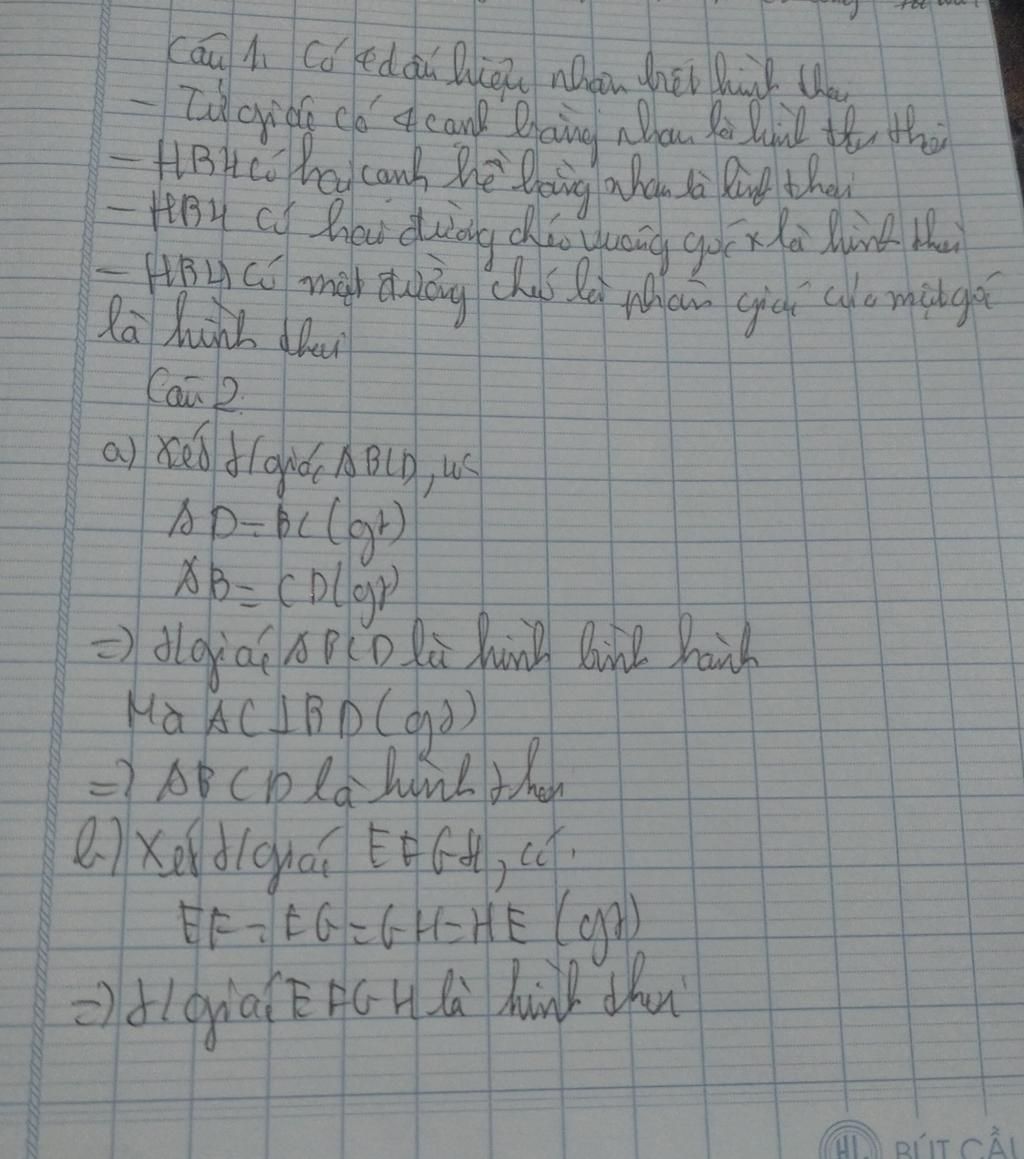 Câu 1. Có 4 dấu hiệu nhận biết hình thoi
- Tứ giác có 4 cạnh bằng nhau là hình thoi
- HBH có hai cạnh kề bằng nhau là hình thoi
- HBH có hai đường chéo vuông góc là hình thoi
- HBH có một đường chéo là phân giác của một góc
là hình thoi
Câu 2.
a) Xét t/giác ABCD, có
AD = BC (gt)
AB = CD (gt)
=) t/giác ABCD là hình bình hành
Mà AC ⊥ BD (gt)
=) ABCD là hình thoi
b) Xét t/giác EFGH, có.
EF = EG = GH = HE (gt)
=) t/giác EFGH là hình thoi
BÚT